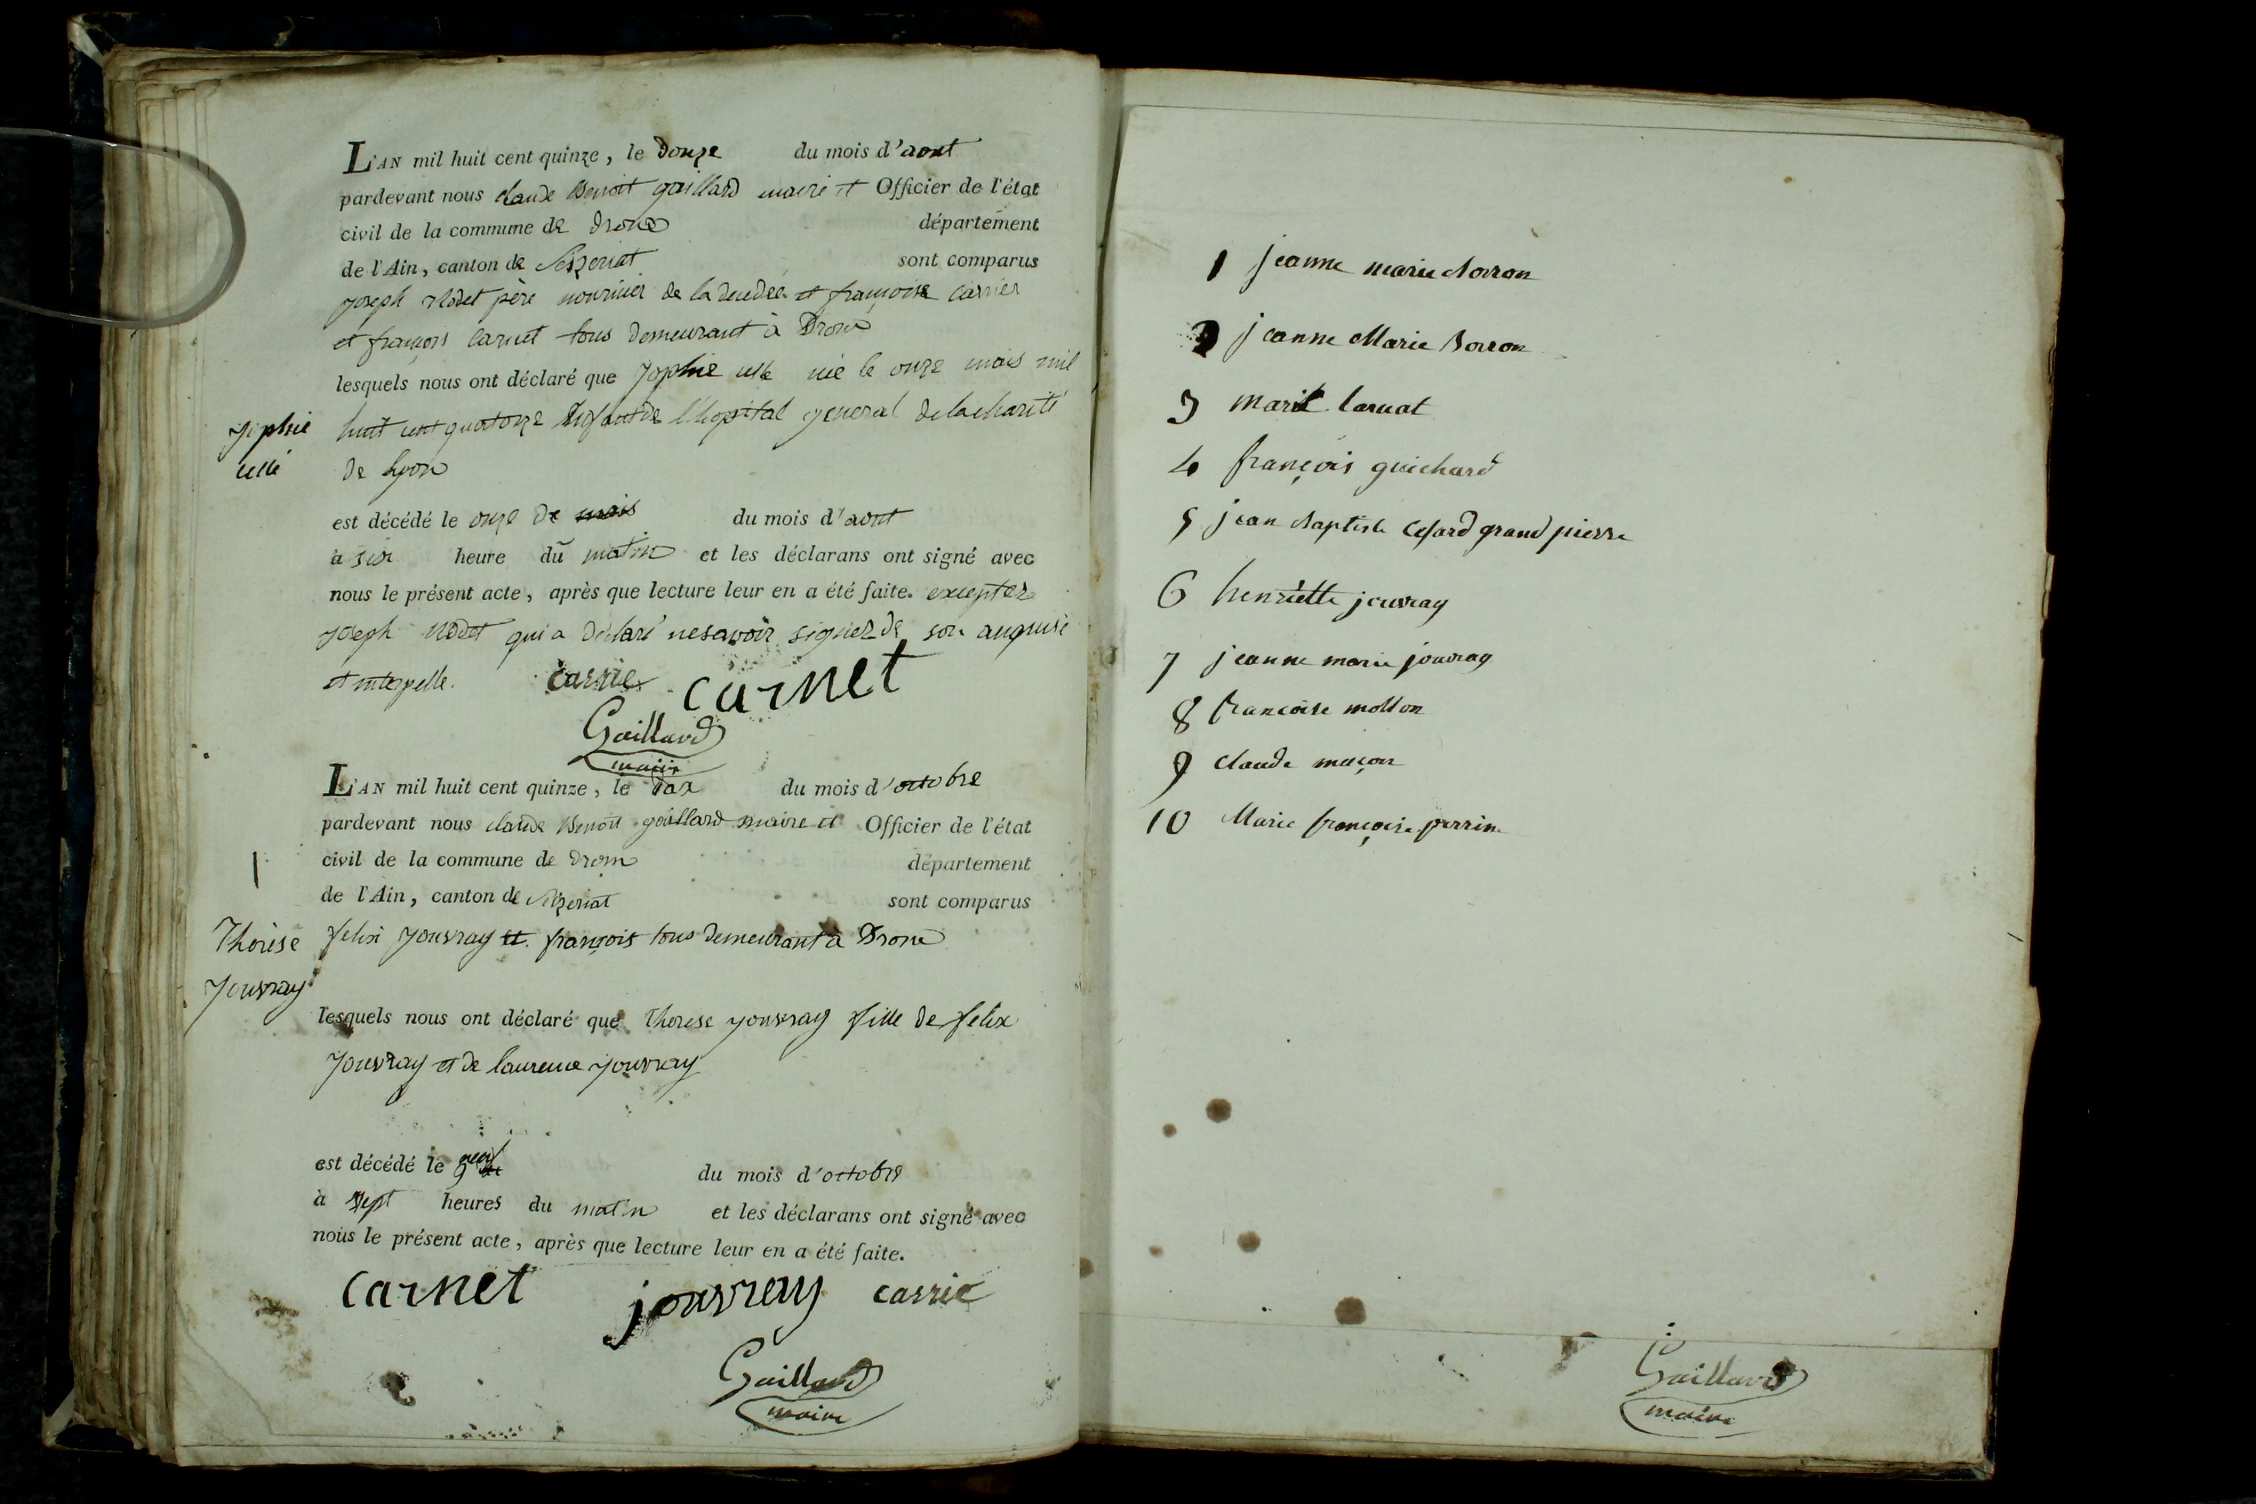 L'AN mil huit cent quinze, le douze du mois d'aout
pardevant nous claude Benoit gaillard maire et Officier de l'état
civil de la commune de drom département
de l'Ain, canton de sont comparus
joseph Nodet père nouricier de la decedée et françoise carrier
et françois carnet tous demeurant à Drom
lesquels nous ont déclaré que Jophie née le onze mais mil
Jophie
huit cent quatorze Enfant de l'hopital general de la charité
de lyon
est décédé le onze de mais du mois d'aout
à six heure du matin et les déclarans ont signé avec
nous le présent acte, après que lecture leur en a été faite. excepter
joseph Nodet qui a déclaré ne savoir signer de son
et
carrie carnet
Gaillard
maire
L'AN mil huit cent quinze, le dix du mois d'octobre
pardevant nous claude Benoit gaillard maire et Officier de l'état
civil de la commune de drom département
de l'Ain, canton de sont comparus
Therese
Jouvray
felix Jouvray et françois tous demeurant à Drom
lesquels nous ont déclaré que Therese jouvray fille de felix
Jouvray et de laurence jouvray
est décédé le neuf du mois d'octobre
à sept heures du matin et les déclarans ont signé avec
nous le présent acte, après que lecture leur en a été faite.
carnet jouvray carrie
Gaillard
maire
1 jeanne marie
2 jeanne Marie
3 marie
4 françois guichard
5 jean baptiste grand pierre
6 henriette jouvray
7 jeanne marie jouvray
8 françoise
9 claude maçon
10 Marie françoise perrin
Gaillard
maire